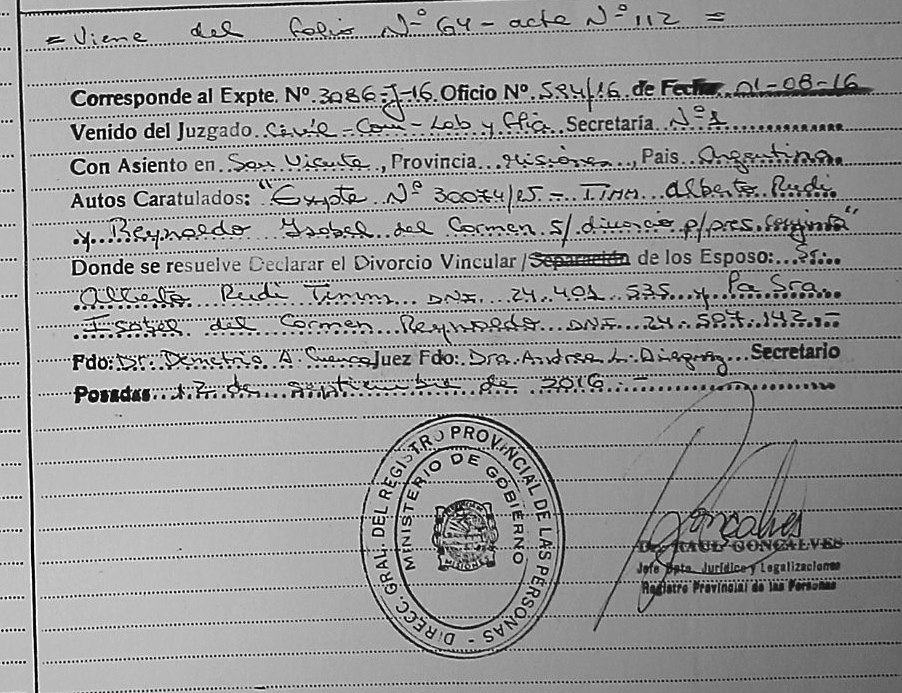 = Viene del folio Nº 64 - acta Nº 112 =
Corresponde al Expte. Nº 3086-J-16 Oficio Nº 584/16 de Fecha 01-08-16
Venido del Juzgado Civil - Com - Lab y Flia Secretaría Nº 1
Con Asiento en San Vicente, Provincia Misiones, Pais Argentina
Autos Caratulados: "Expte Nº 30074/15 = Timm Alberto Rudi
y Reynoldo Isabel del Carmen s/ divorcio p/ pres. conjunta"
Donde se resuelve Declarar el Divorcio Vincular / Separación de los Esposo: Sr.
Alberto Rudi Timm DNI. 24.401.535 y la Sra.
Isabel del Carmen Reynoldo DNI. 24.587.142 =
Fdo: Dr. Demetrio A. Cuenca Juez Fdo: Dra. Andrea L. Secretario
Posadas 12 de septiembre de 2016 =
DIRECC. GRAL. DEL REGISTRO PROVINCIAL DE LAS PERSONAS -
MINISTERIO DE GOBIERNO
Goncalves
Dr. RAUL GONCALVES
Jefe Dpto. Jurídico y Legalizaciones
Registro Provincial de las Personas